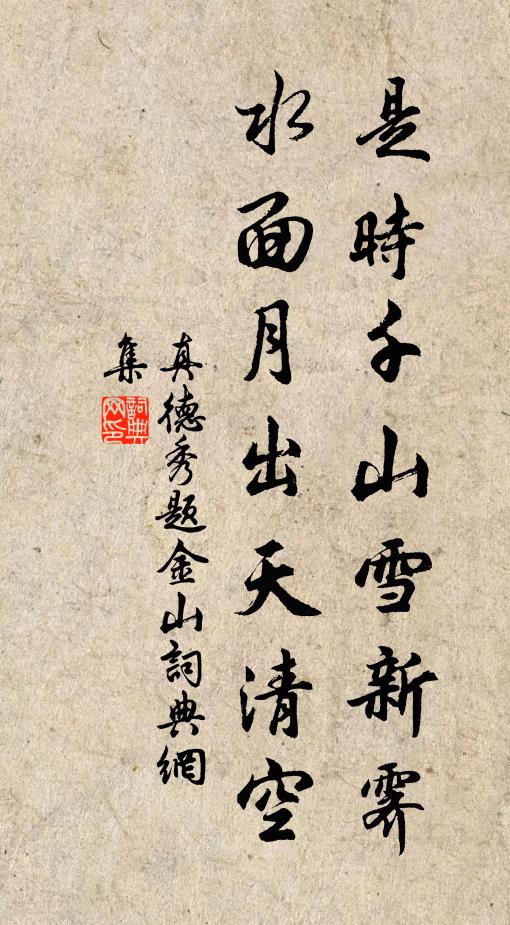 是時千山雪新霽
水面月出天清空
真德秀题金山詞典網
集
詞典网印